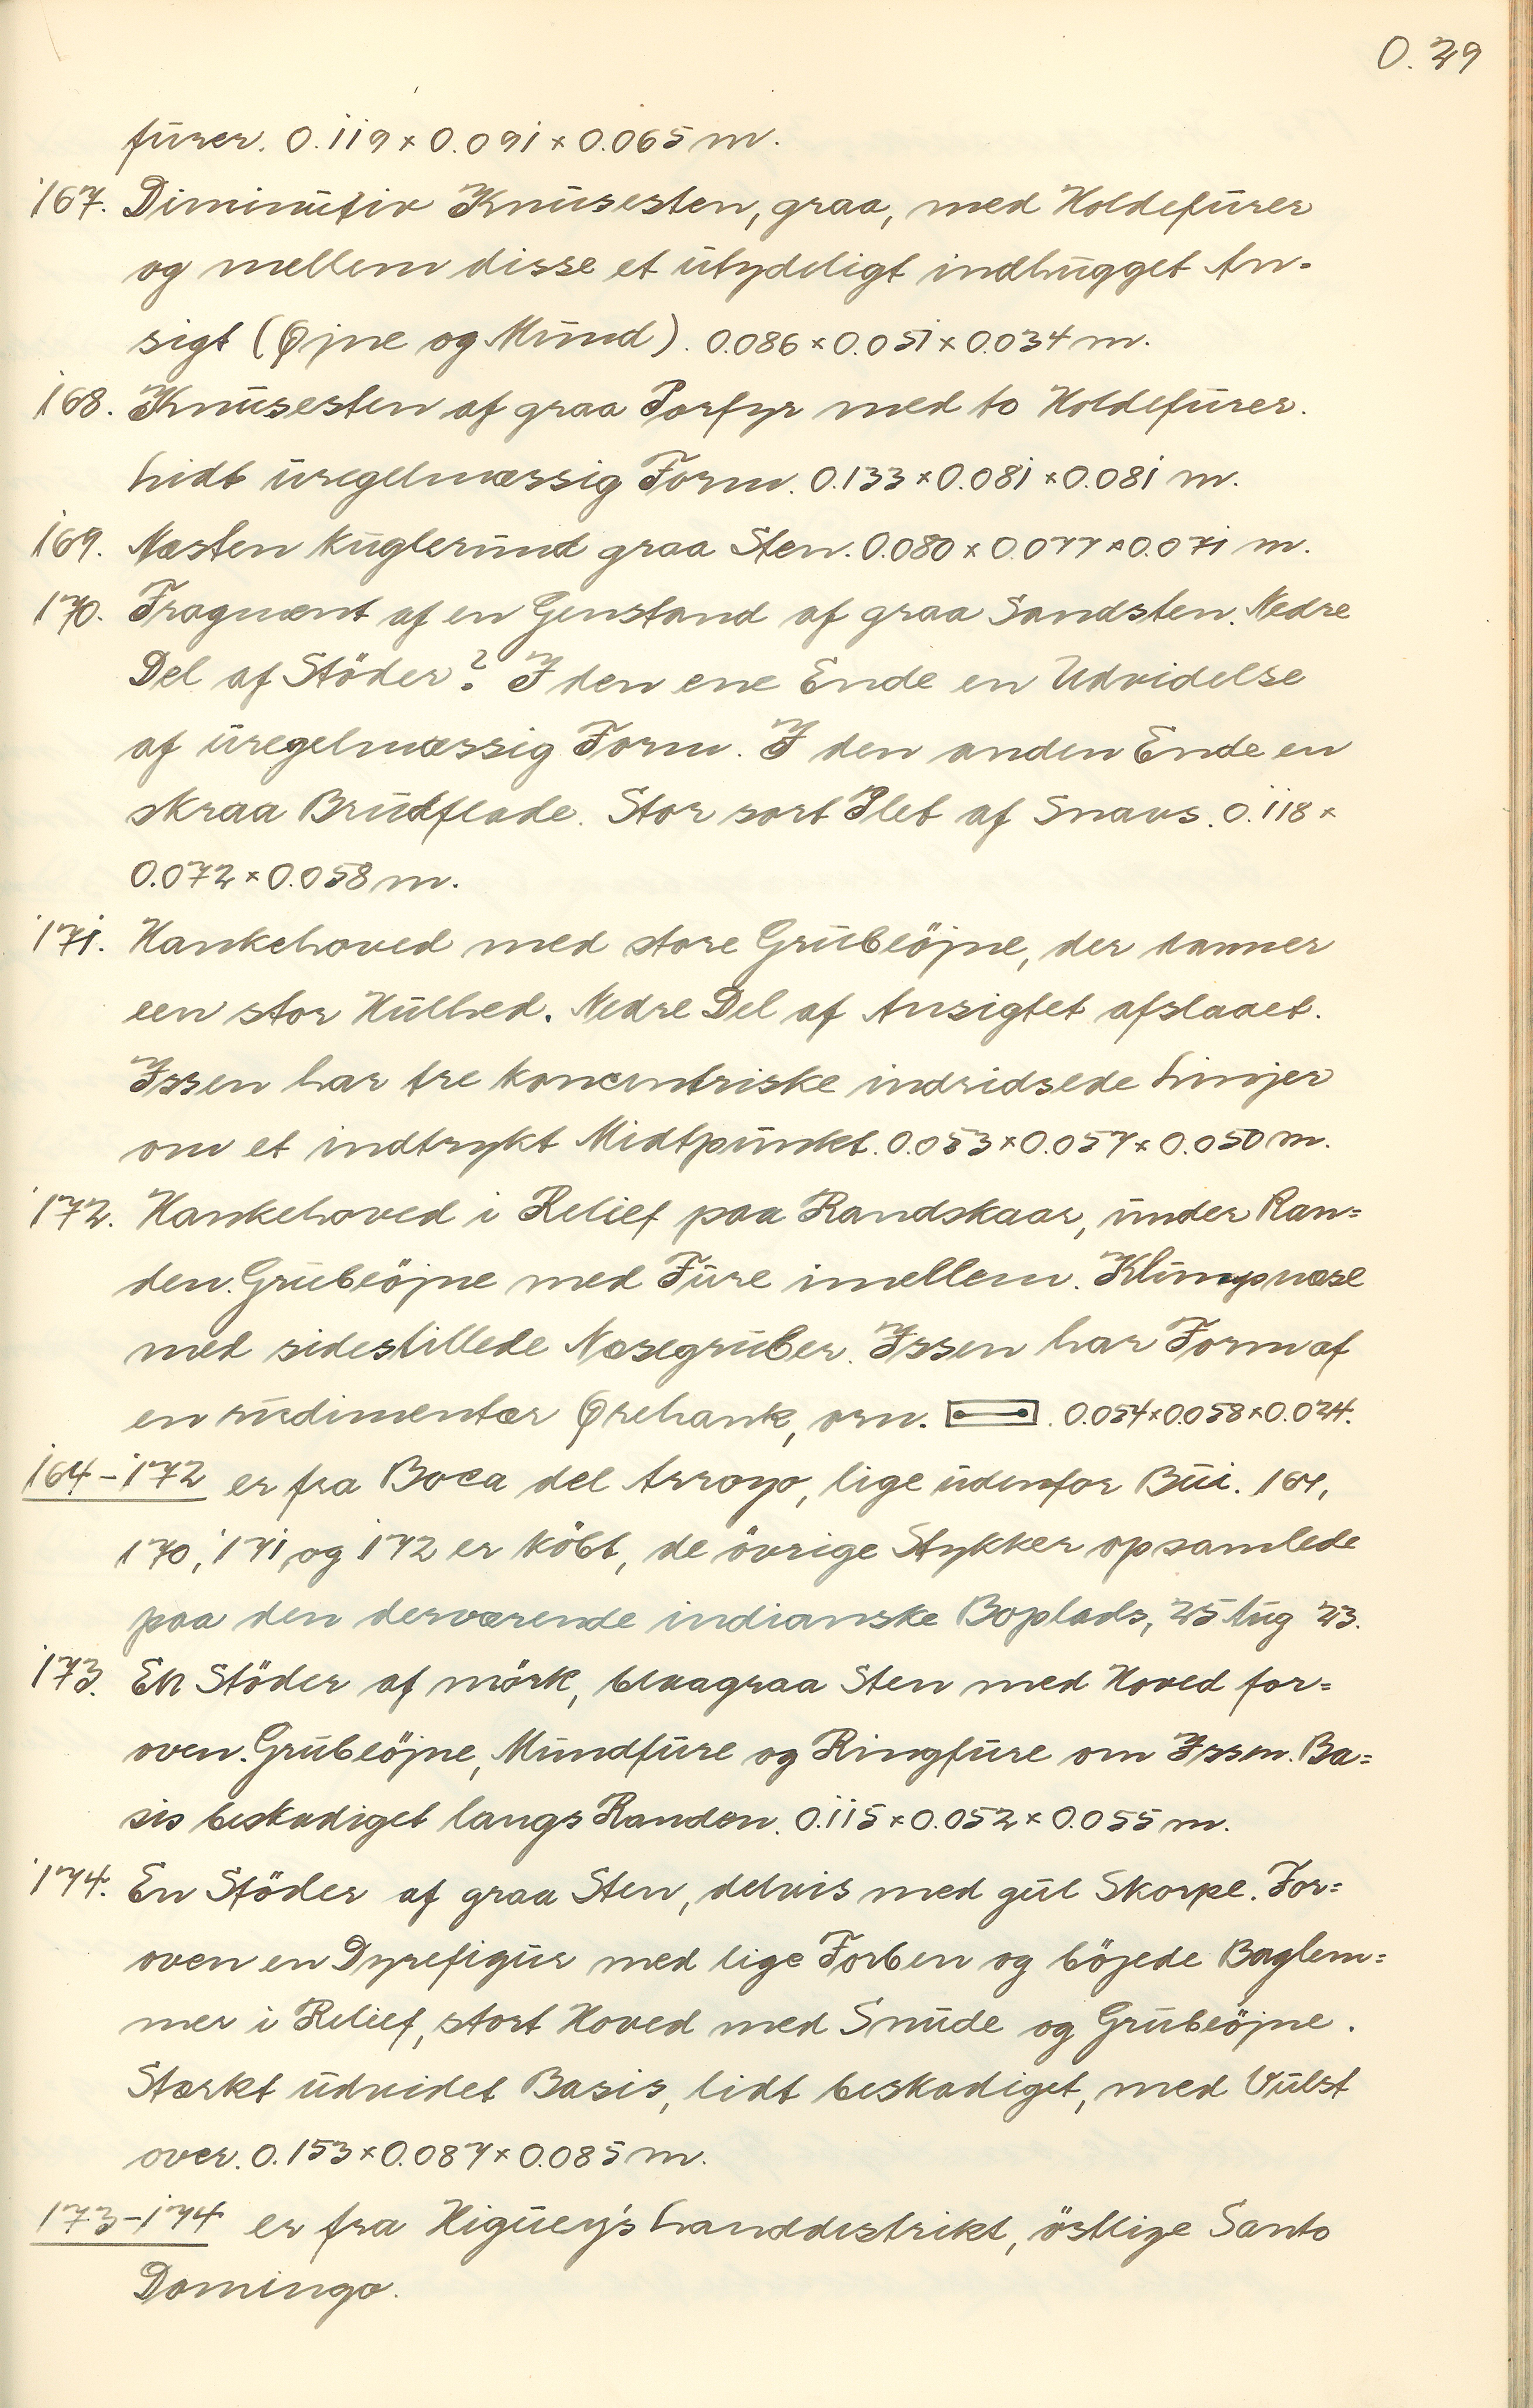 O. 29
furer. 0.119 × 0.091 × 0.065 m.
167. Diminutiv Knusesten, graa, med Holdefurer
og mellem disse et utydeligt indhugget An=
sigt (Øjne og Mund). 0.086 × 0.051 × 0.034 m.
168. Knusesten af graa Porfyr med to Holdefurer.
Lidt uregelmæssig Form. 0.133 × 0.081 × 0.081 m.
169. Næsten kuglerund graa Sten. 0.080 × 0.077 × 0.071 m.
170. Fragment af en Genstand af graa Sandsten. Nedre
Del af Stöder? I den ene Ende en Udvidelse
af uregelmæssig Form. I den anden Ende en
skraa Brudflade. Stor sort Plet af Snavs. 0.118 ×
0.072 × 0.058 m.
171. Hankehoved med store Grubeöjne, der danner
een stor Hulhed. Nedre Del af Ansigtet afslaaet.
Issen har tre koncentriske indridsede Linjer
om et indtrykt Midtpunkt. 0.053 × 0.057 × 0.050 m.
172. Hankehoved i Relief paa Randskaar, under Ran=
den. Grubeöjne med Fure imellem. Klumpnæse
med sidestillede Næsegruber. Issen har Form af
en rudimentær Ørehank, orn. . 0.054 × 0.058 × 0.024.
164-172 er fra Boca del Arroyo, lige udenfor Bui. 164,
170, 171 og 172 er köbt, de övrige Stykker opsamlede
paa den derværende indianske Boplads, 25 Aug 23.
173. En Stöder af mörk, blaagraa Sten med Hoved for=
oven. Grubeöjne, Mundfure og Ringfure om Issen. Ba=
sis beskadiget langs Randen. 0.115 × 0.052 × 0.055 m.
174. En Stöder af graa Sten, delvis med gul Skorpe. For=
oven en Dyrefigur med lige Forben og böjede Baglem=
mer i Relief, stort Hoved med Snude og Grubeöjne.
Stærkt udvidet Basis, lidt beskadiget, med Vulst
over. 0.153 × 0.087 × 0.085 m.
173-174 er fra Higüey's Landdistrikt, östlige Santo
Domingo.